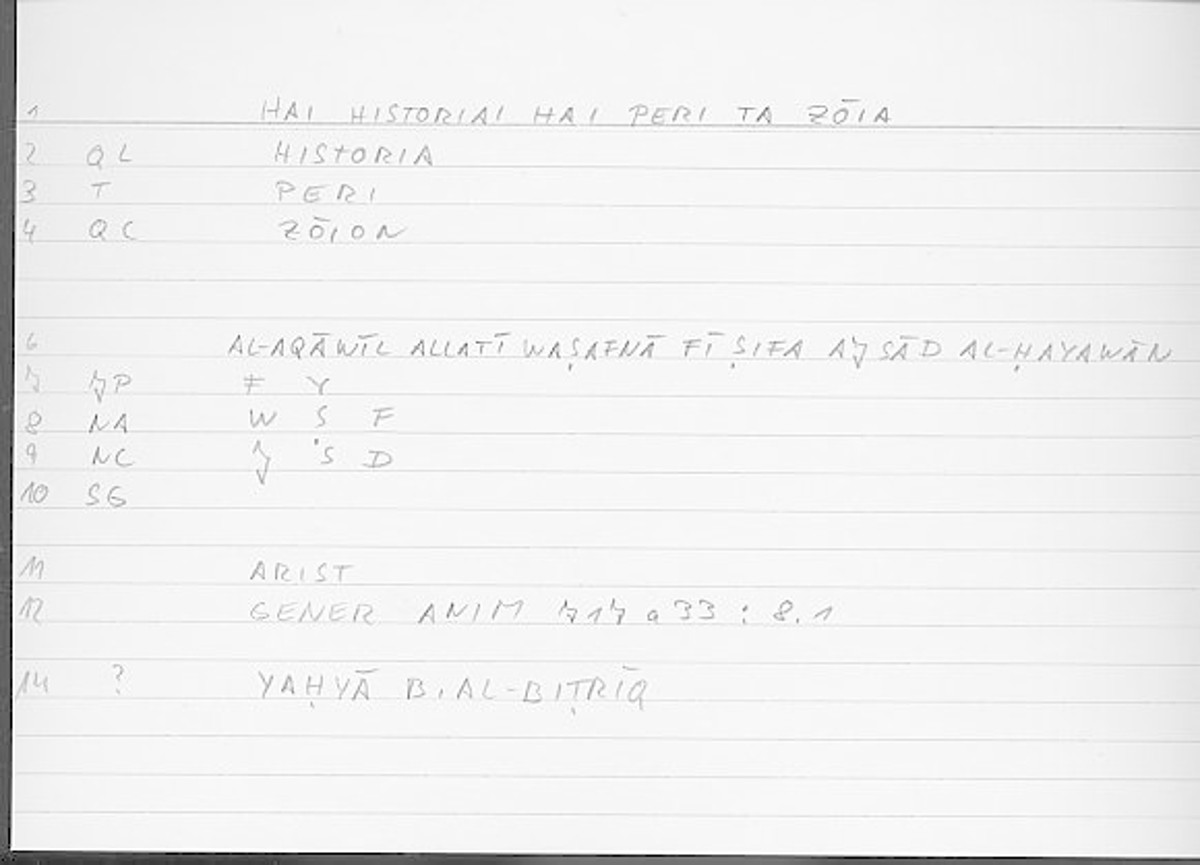 1 HAI HISTORIAI HAI PERI TA ZŌIA
2 QL HISTORIA
3 T PERI
4 QC ZŌION
6 AL-AQĀWĪL ALLATĪ WAṢAFNĀ FĪ ṢIFA AJSĀD AL-ḤAYAWĀN
7 JP F Y
8 NA W S F
9 NC J 'S D
10 SG
11 ARIST
12 GENER ANIM 717 a 33 : 8.1
14 ? YAḤYĀ B. AL-BIṬRĪQ